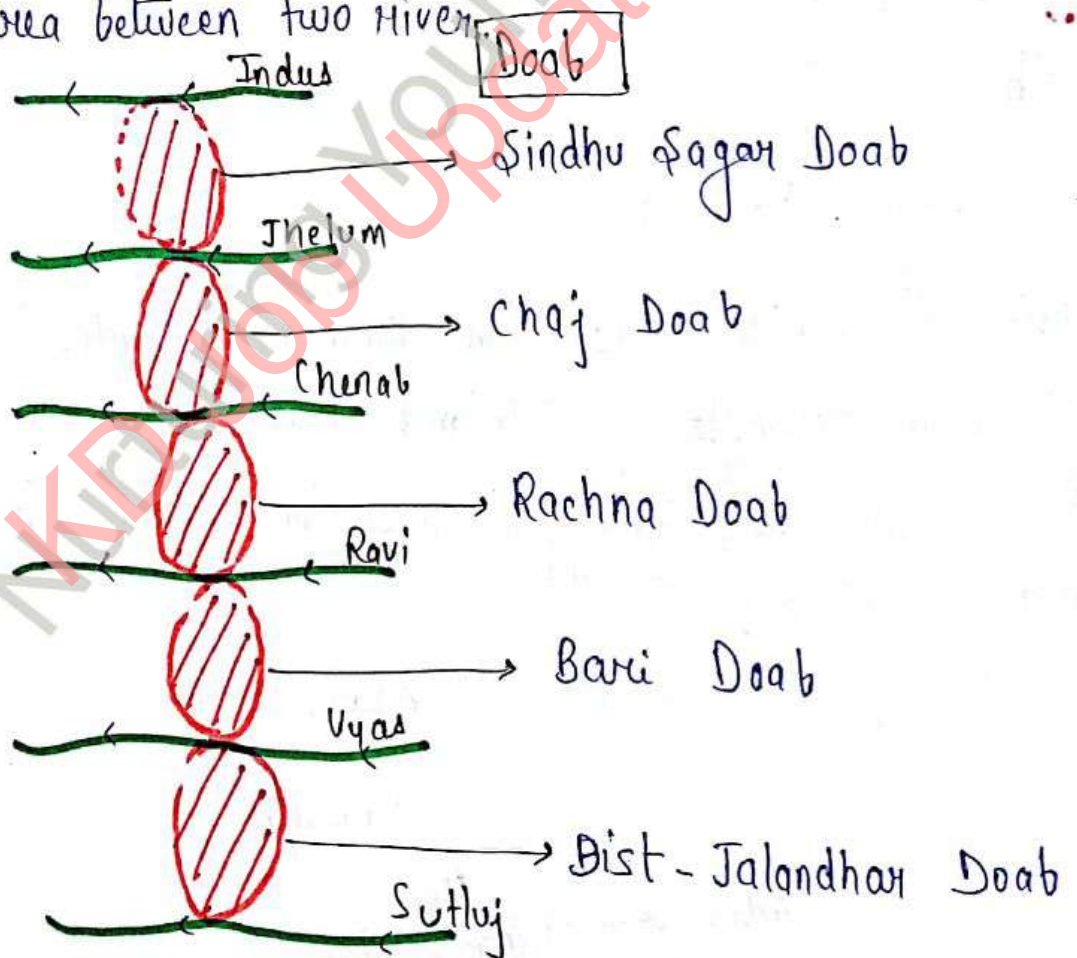 area between two river. Doab
Indus
Sindhu Sagar Doab
Jhelum
Chaj Doab
Chenab
Rachna Doab
Ravi
Bari Doab
Vyas
Bist - Jalandhar Doab
Sutluj
KD Job Updat
Nurturing You